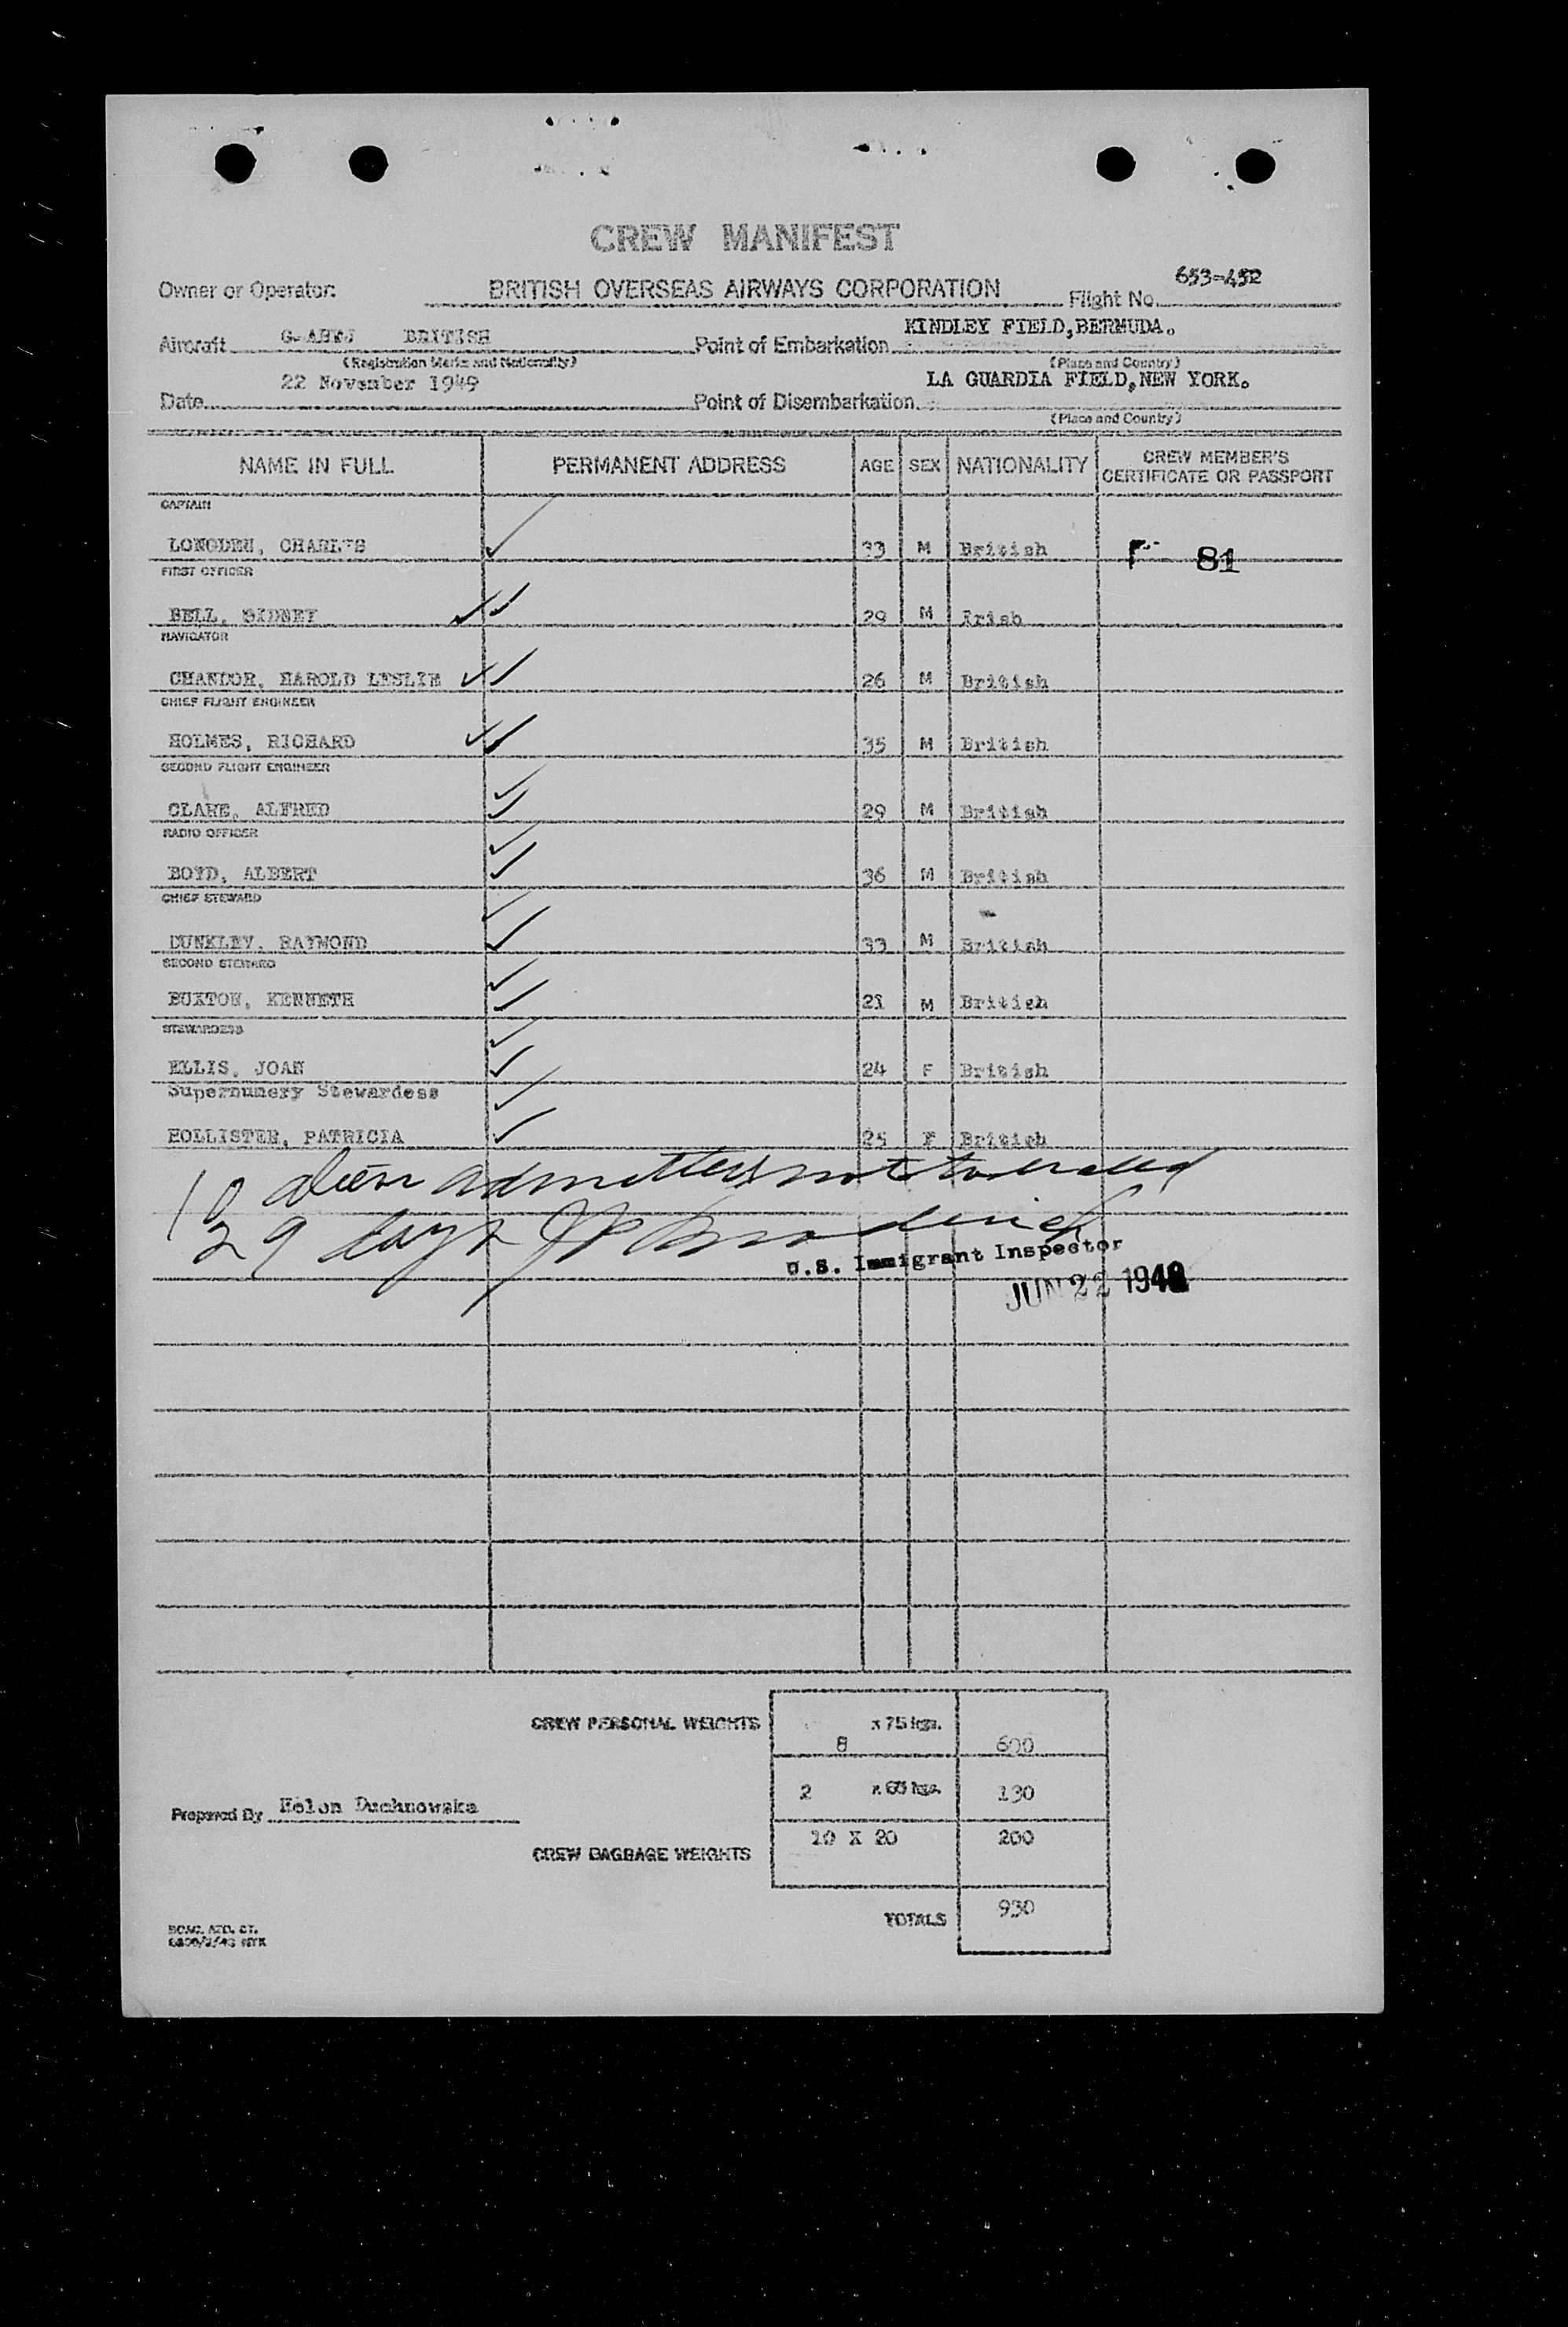 CREW MANIFEST
Owner or Operator: BRITISH OVERSEAS AIRWAYS CORPORATION Flight No. 653-452
Aircraft BRITISH Point of Embarkation KINDLEY FIELD, BERMUDA.
(Registration Marks and Nationality) (Place and Country)
Date 22 November 1949 Point of Disembarkation LA GUARDIA FIELD, NEW YORK.
(Place and Country)
NAME IN FULL PERMANENT ADDRESS AGE SEX NATIONALITY CREW MEMBER'S CERTIFICATE OR PASSPORT
CAPTAIN
LONGDEN, CHARLES 33 M British F 81
FIRST OFFICER
BELL, SIDNEY 29 M Irish
NAVIGATOR
CHANDOR, HAROLD LESLIE 26 M British
CHIEF FLIGHT ENGINEER
HOLMES, RICHARD 35 M British
SECOND FLIGHT ENGINEER
CLARE, ALFRED 29 M British
RADIO OFFICER
BOYD, ALBERT 36 M British
CHIEF STEWARD
DUNKLEY, RAYMOND 33 M British
SECOND STEWARD
BUXTON, KENNETH 21 M British
STEWARDESS
ELLIS, JOAN 24 F British
Supernumery Stewardess
HOLLISTER, PATRICIA 25 F British
10 aliens admitted not to exceed
29 days
U.S. Immigrant Inspector
JUN 22 194
CREW PERSONAL WEIGHTS 8 x 75 kgs. 600
2 x 65 kgs. 130
Prepared By Helen Duchnowska
10 X 20 200
CREW BAGGAGE WEIGHTS
TOTALS 930